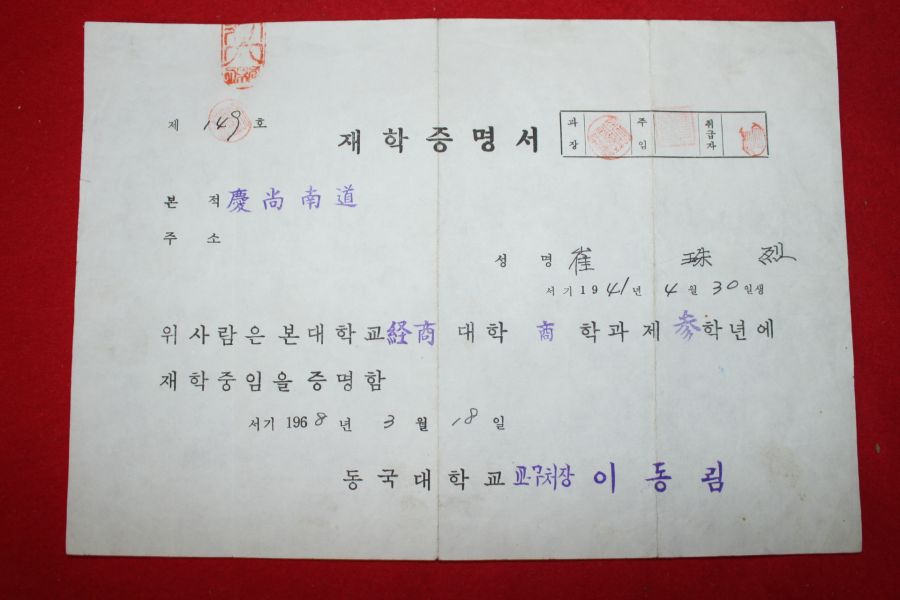 제 149 호
재학증명서
과장 주임 취급자
본 적 慶尚南道
주 소
성 명 崔 珠 烈
서기1941년 4월 30일생
위 사람은 본대학교 経商 대학 商 학과 제 参 학년에
재학중임을 증명함
서기 1968년 3월 18일
동국대학교 교무처장 이동림